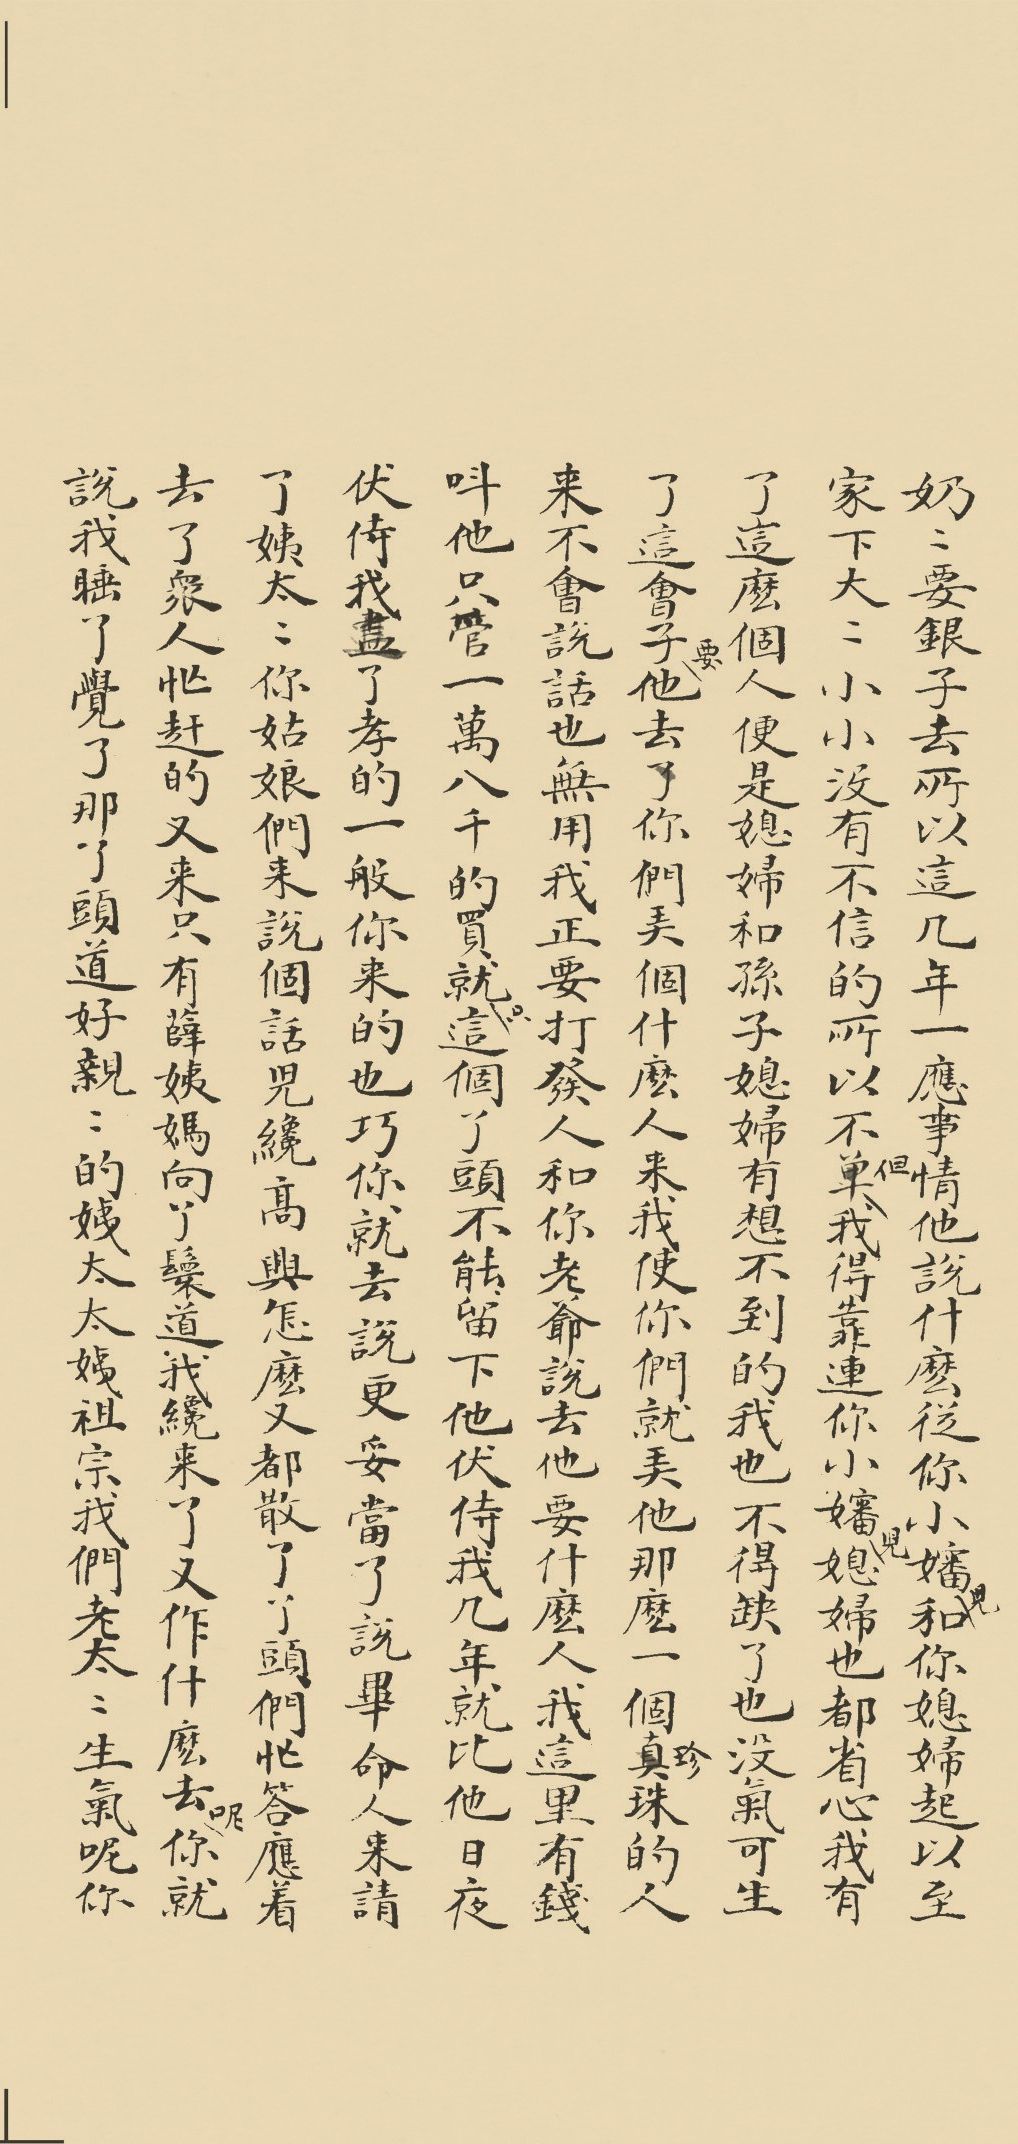 奶〻要銀子去所以這几年一應事情他說什麽從你小嬸兒和你媳婦起以至
家下大〻小小没有不信的所以不单但我得靠連你小嬸兒媳婦也都省心我有
了這麽個人便是媳婦和孫子媳婦有想不到的我也不得缺了也没氣可生
了這會子他要去了你們弄個什麽人来我使你們就弄他那麽一個真珍珠的人
来不會說話也無用我正要打發人和你老爺說去他要什麽人我這里有錢
呌他只管一萬八千的買就只這個丫頭不能留下他伏侍我几年就比他日夜
伏侍我盡了孝的一般你来的也巧你就去說更妥當了說畢命人来請
了姨太〻你姑娘們来說個話児纔高興怎麽又都散了丫頭們忙答應着
去了衆人忙赶的又来只有薛姨媽向丫鬟道我纔来了又作什麽去呢你就
說我睡了覺了那丫頭道好親〻的姨太太姨祖宗我們老太〻生氣呢你